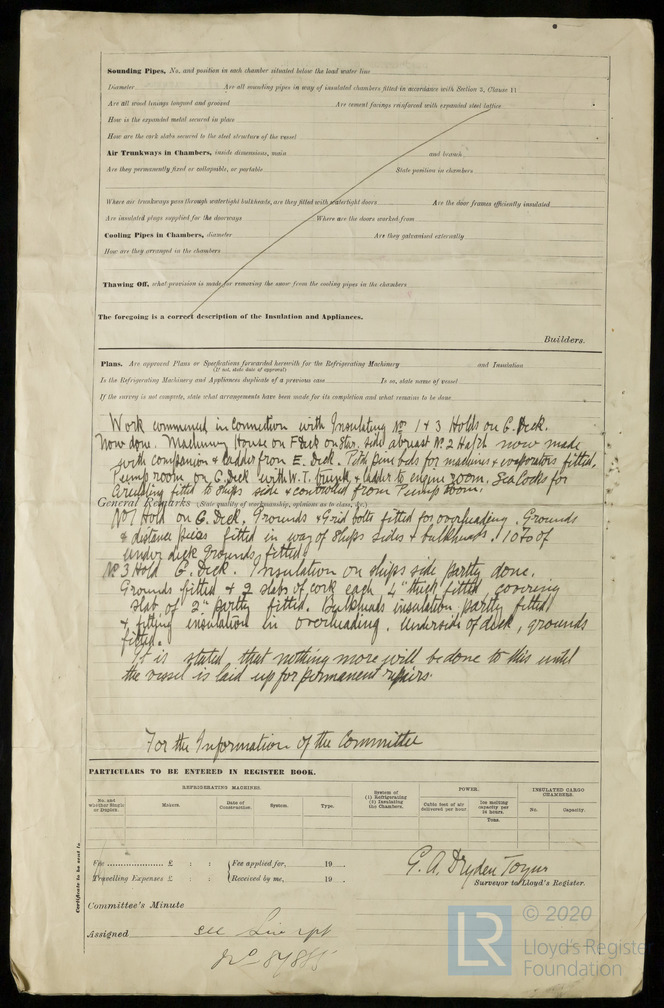 Sounding Pipes, No. and position in each chamber situated below the load water line
Diameter Are all sounding pipes in way of insulated chambers fitted in accordance with Section 3, Clause 11
Are all wood linings tongued and grooved Are cement facings reinforced with expanded steel lattice
How is the expanded metal secured in place
How are the cork slabs secured to the steel structure of the vessel
Air Trunkways in Chambers, inside dimensions, main and branch
Are they permanently fixed or collapsible, or portable State position in chambers
Where air trunkways pass through watertight bulkheads, are they fitted with watertight doors Are the door frames efficiently insulated
Are insulated plugs supplied for the doorways Where are the doors worked from
Cooling Pipes in Chambers, diameter Are they galvanised externally
How are they arranged in the chambers
Thawing Off, what provision is made for removing the snow from the cooling pipes in the chambers
The foregoing is a correct description of the Insulation and Appliances.
Builders.
Plans. Are approved Plans or Specifications forwarded herewith for the Refrigerating Machinery and Insulation
(If not, state date of approval)
Is the Refrigerating Machinery and Appliances duplicate of a previous case If so, state name of vessel
If the survey is not complete, state what arrangements have been made for its completion and what remains to be done
Work commenced in connection with Insulating No 1 & 3 Holds on G. Deck.
Now done. Machinery House on F Deck on Star. side abreast No 2 Hatch now made
with companion & ladder from E. Deck. Pitch pine beds for machines & evaporators fitted,
Pump room on G. Deck with W.T. trunk & ladder to engine room, Sea Cocks for
circulating fitted to ships side & controlled from Pump room.
General Remarks (State quality of workmanship, opinions as to class, &c.)
No 1 Hold on G. Deck. Grounds & Grid bolts fitted for overheading. Grounds
& distance pieces fitted in way of ships sides & bulkheads. 10% of
under deck grounds fitted.
No 3 Hold G. Deck. Insulation on ships side partly done.
Grounds fitted & 2 slabs of cork each 4" thick fitted covering
slab of 2" partly fitted. Bulkheads insulation partly fitted
& fitting insulation in overheading. Underside of deck, grounds
fitted.
It is stated that nothing more will be done to this until
the vessel is laid up for permanent repairs.
For the Information of the Committee
PARTICULARS TO BE ENTERED IN REGISTER BOOK.
REFRIGERATING MACHINES. System of (1) Refrigerating (2) Insulating the Chambers. POWER. INSULATED CARGO CHAMBERS.
No. and whether Single or Duplex. Makers. Date of Construction. System. Type. Cubic feet of air delivered per hour Ice melting capacity per 24 hours. Tons. No. Capacity.
Certificate to be sent to
Fee £ : : Fee applied for, 19
Travelling Expenses £ : : Received by me, 19
G. A. Dryden
Surveyor to Lloyd's Register.
Committee's Minute
Assigned See
© 2020
LR
Lloyd's Register
Foundation